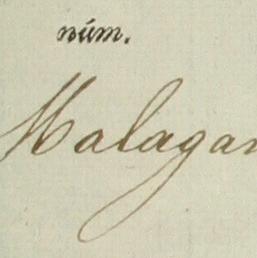 núm.
Malagar